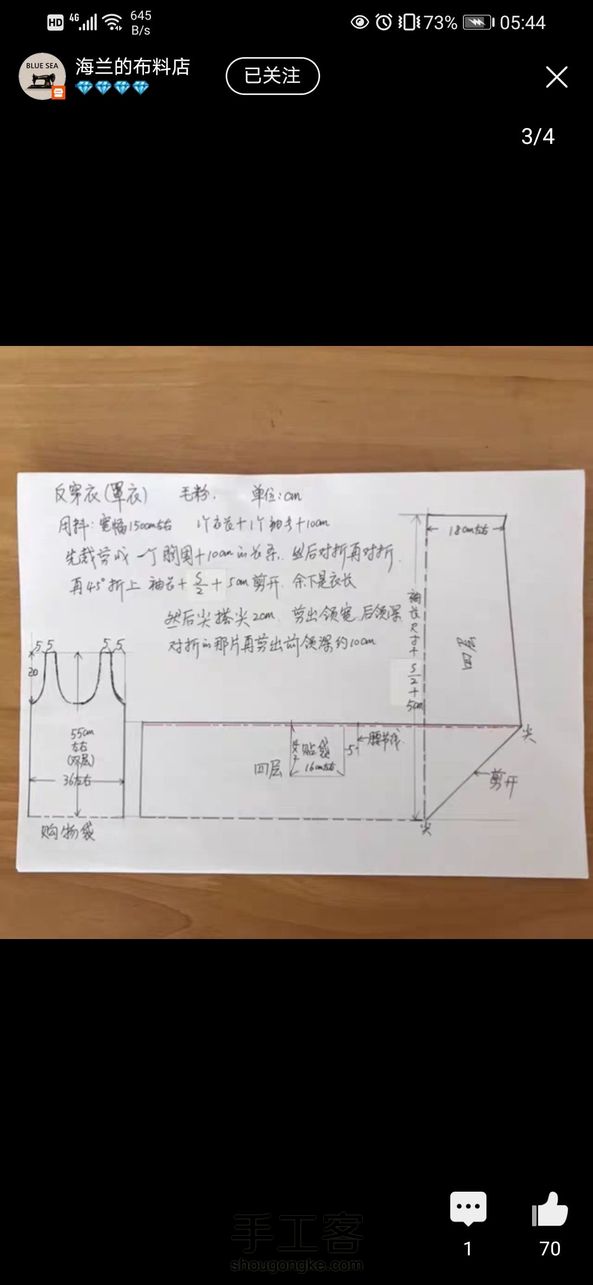 HD 4G 645 B/s 73% 05:44
BLUE SEA
海兰的布料店
已关注
3/4
反穿衣(罩衣) 毛粉. 单位:cm
用料:宽幅150cm左右 1个衣长+1个袖长+10cm
先裁剪成一个胸围+10cm的长条. 然后对折再对折.
再45°折上 袖长+S/2+5cm剪开. 余下是衣长
然后尖搭尖2cm. 剪出领宽. 后领深
对折的那片再剪出前领深约10cm
18cm左右
袖长尺寸+S/2+5cm
四层
5 5 5 5
20
55cm
左右
(双层)
36左右
购物袋
四层
贴袋
16cm左右
5
腰节线
尖
剪开
尖
手工客
shougongke.com
1
70